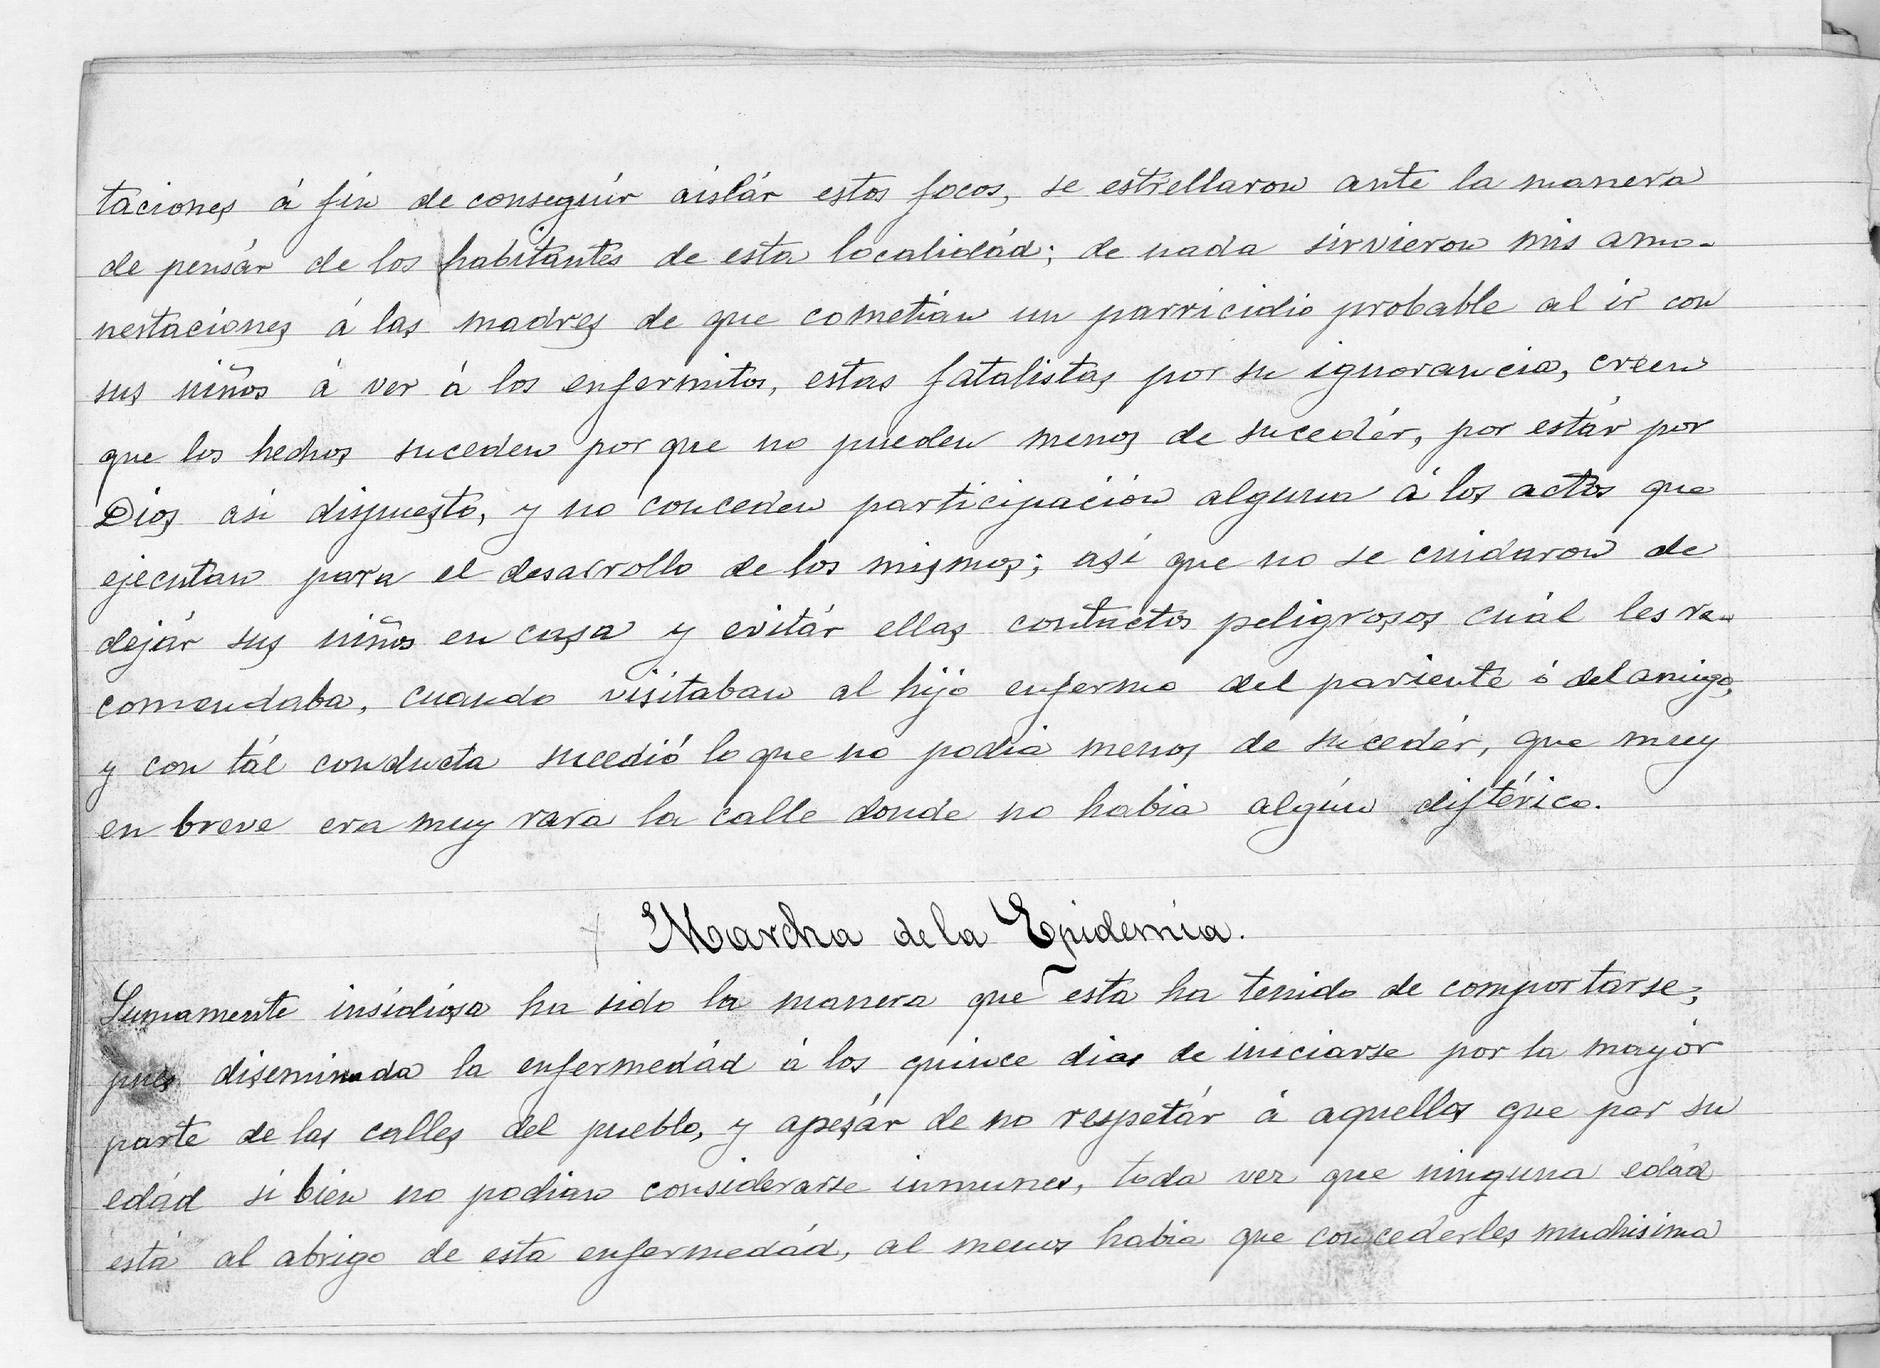 taciones á fin de conseguir aislár estos focos, se estrellaron ante la manera
de pensár de los habitantes de esta localidád; de nada sirvieron mis amo-
nestaciones á las madres de que cometian un parricidio probable al ir con
sus niños á ver á los enfermitos, estas fatalistas por su ignorancia, creen
que los hechos suceden por que no pueden menos de sucedér, por estár por
Dios asi dispuesto, y no conceden participación alguna á los actos que
ejecutan para el desarrollo de los mismos; así que no se cuidaron de
dejár sus niños en casa y evitár ellas contactos peligrosos cuál les re-
comendaba, cuando visitaban al hijo enfermo del pariente ó del amigo,
y con tál conducta sucedió lo que no podia menos de sucedér, que muy
en breve era muy rara la calle donde no habia algún diftérico.
Marcha de la Epidemia.
Sumamente insidiosa ha sido la manera que esta ha tenido de comportarse;
pues diseminada la enfermedád á los quince dias de iniciarse por la mayór
parte de las calles del pueblo, y apesár de no respetár á aquellos que por su
edád si bien no podian considerarse inmunes, toda vez que ninguna edád
está al abrigo de esta enfermedád, al menos habia que concederles muchisima